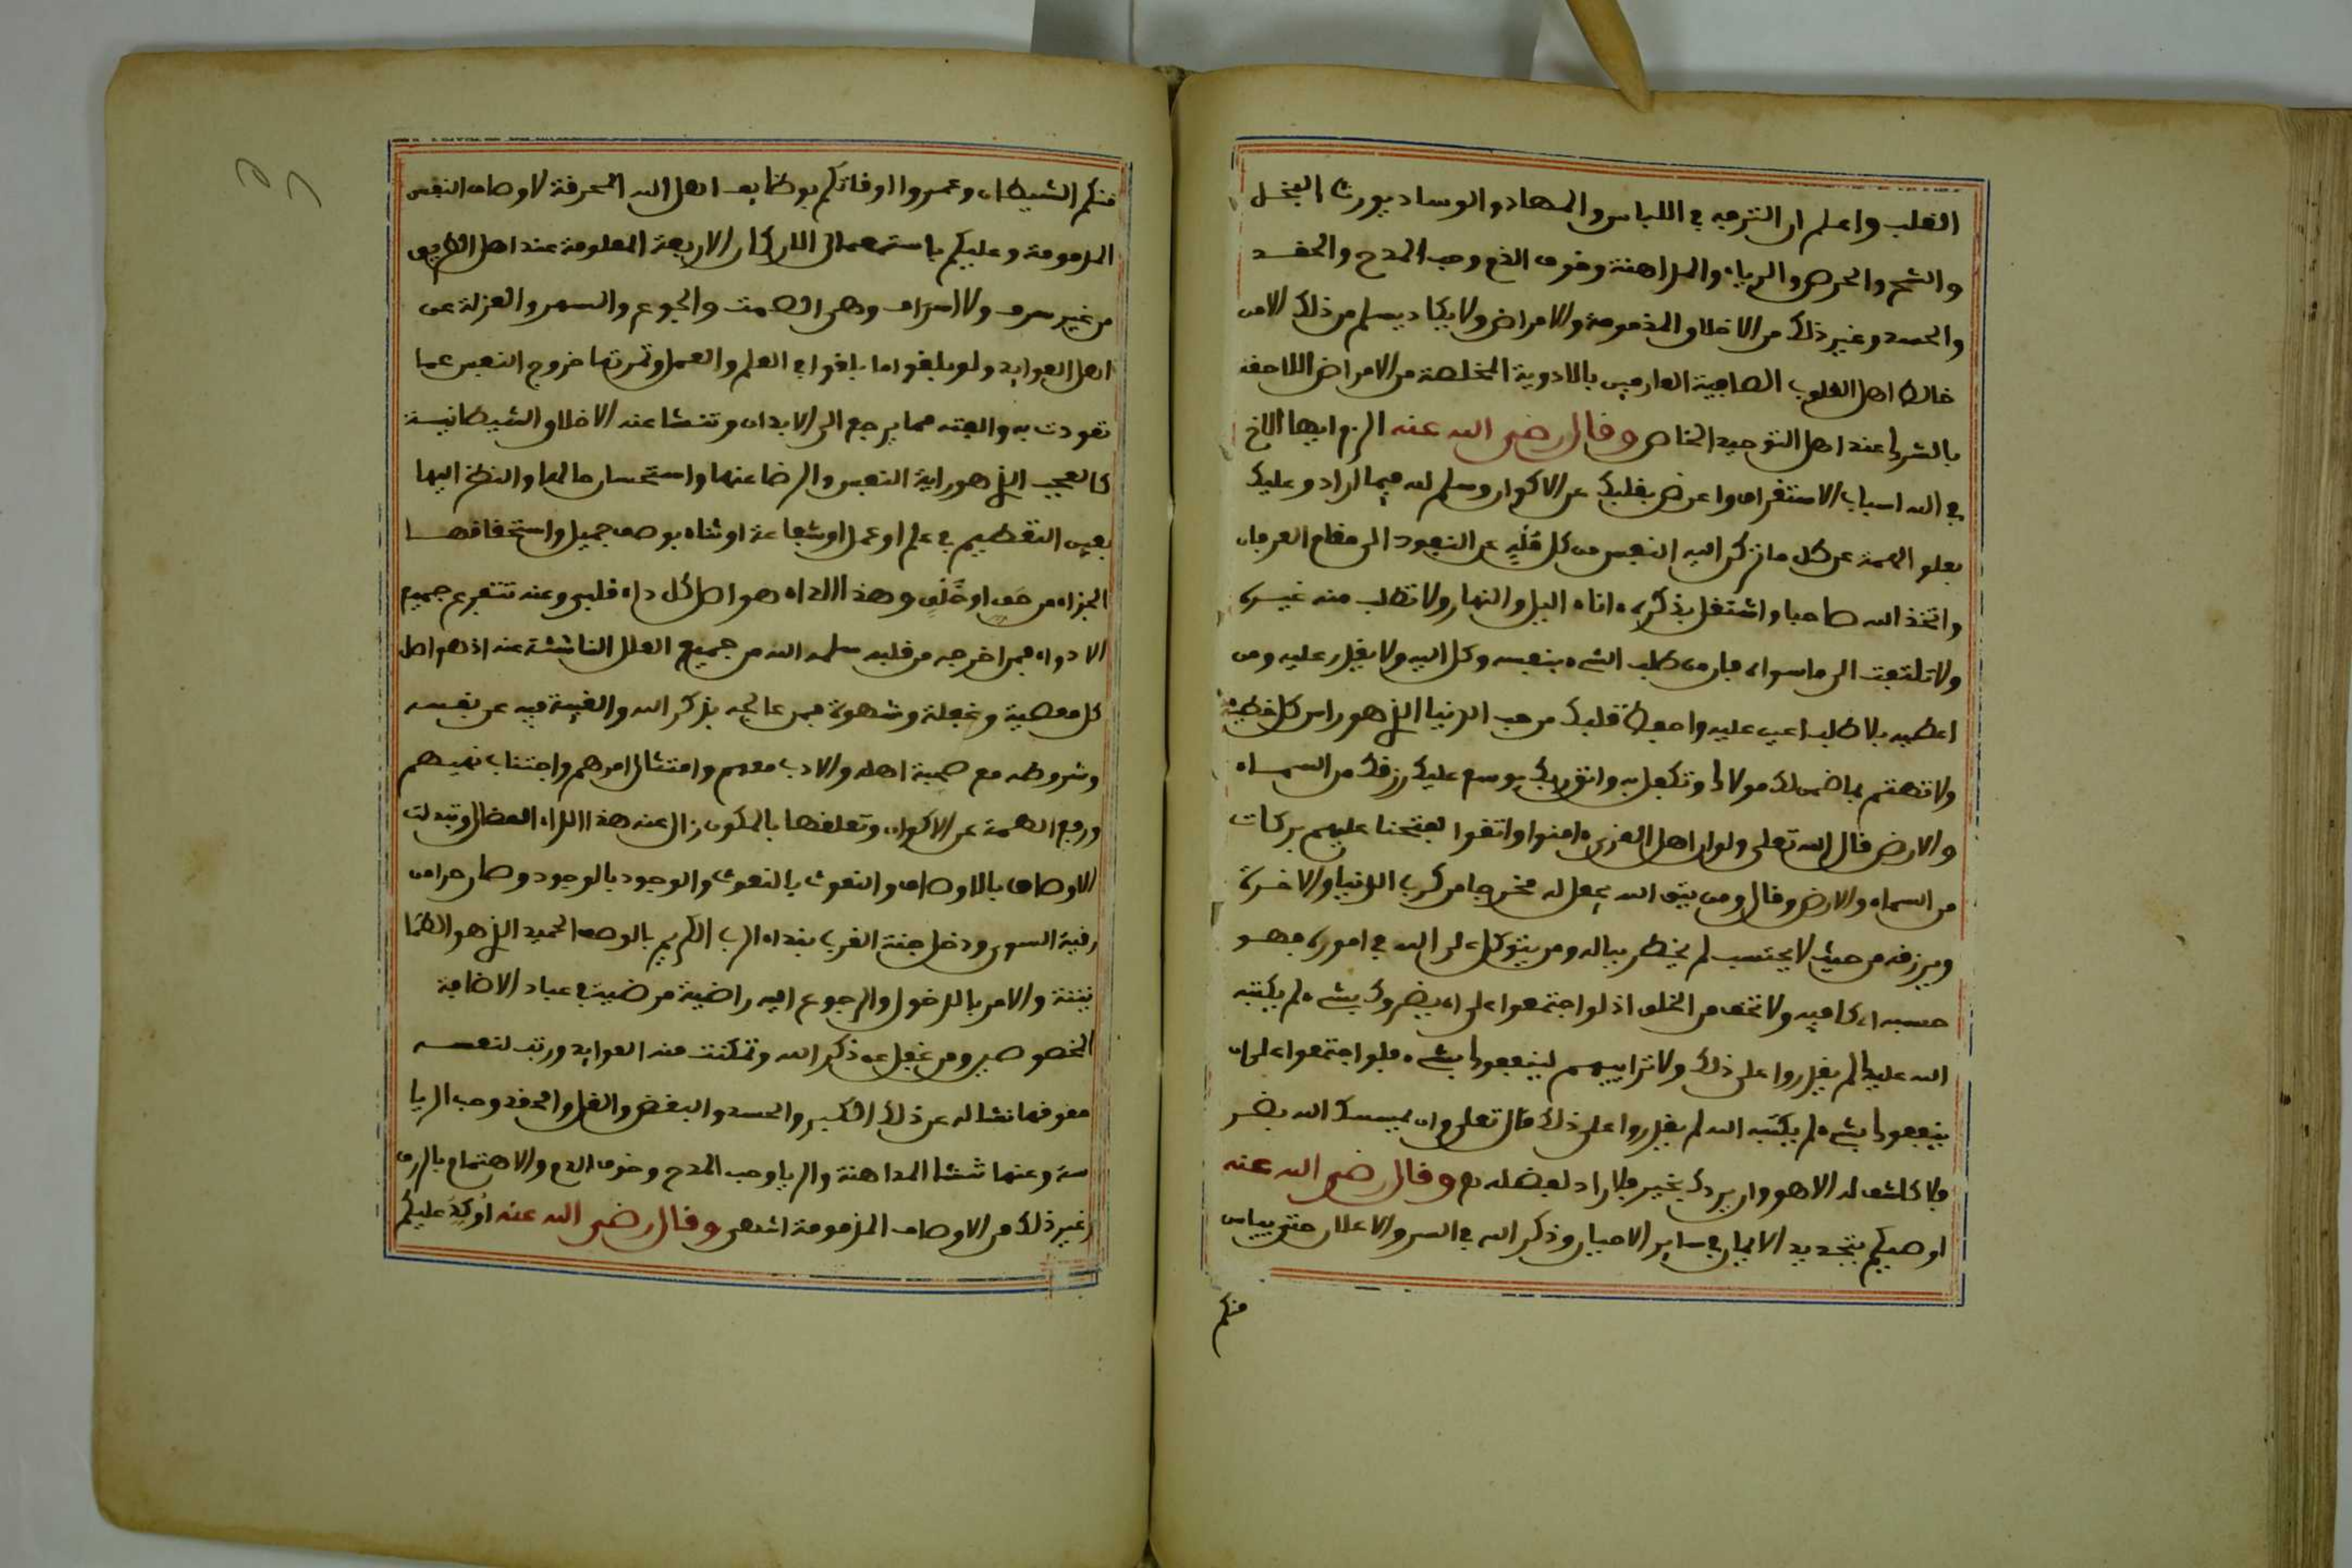 القلب واعلم ان الترفه في اللباس والمهاد والوساد يورث البخل
والشح والحرص والرياء والمداهنة وخوف الذم وحب المدح والحقد
والحسد وغير ذلك من الاخلاق المذمومة والامراض ولا يكاد يسلم من ذلك الا من
خالط اهل القلوب الصافية العارفين بالادوية المخلصة من الامراض اللاحقة
بالشرك عند اهل التوحيد الخاص وقال رضي الله عنه الزم ايها الاخ
في الله اسباب الاستغراق واعرض بقلبك عن الاكوان وسلم لله فيما اراد وعليك
بعلو الهمة عن كل ما تركن اليه النفس من كل مُلَهٍ عن النفوذ الى مقام العرفان
واتخذ الله صاحبا واشتغل بذكره ءاناء اليل والنهار ولا تطلب منه غيره
ولا تلتفت الى ما سواه فان من طلب الشيء بنفسه وكل اليه ولا يقدر عليه ومن
اعطيه بلا طلب اعين عليه واحفظ قلبك من حب الدنيا الذي هو راس كل خطيئة
ولا تهتم بما ضمن لك مولاك وتكفل به واتق ربك يوسع عليك رزقك من السماء
والارض قال الله تعلى ولو ان اهل القرى ءامنوا واتقوا لفتحنا عليهم بركات
من السماء والارض وقال ومن يتق الله يجعل له مخرجا من كرب الدنيا والاخرة
ويرزقه من حيث لا يحتسب لم يخطر بباله ومن يتوكل على الله في اموره فهو
حسبه اي كافيه ولا تخف من الخلق اذ لو اجتمعوا على ان يضروك بشيء لم يكتبه
الله عليك لم يقدروا على ذلك ولا تراييهم لينفعوك بشيء فلو اجتمعوا على ان
ينفعوك بشيء لم يكتبه الله لم يقدروا على ذلك قال تعلى وان يمسسك الله بضر
فلا كاشف له الا هو وان يردك بخير فلا راد لفضله وقال رضي الله عنه
اوصيكم بتجديد الايمان في ساير الاحيان وذكر الله في السر والاعلان حتى يياس
منكم
منكم الشيطان وعمروا اوقاتكم بوظايف اهل الله المحرقة لاوصاف النفس
المذمومة وعليكم باستعمال الاركان الاربعة المعلومة عند اهل الطريق
من غير سرف ولا اسراف وهي الصمت والجوع والسهر والعزلة عن
اهل العوايد ولو بلغوا ما بلغوا في العلم والعمل وثمرتها خروج النفس عما
تعودت به والفته مما يرجع الى الابدان وتنشا عنه الاخلاق الشيطانية
كالعجب الذي هو راية النفس والرضا عنها واستحسان حالها والنظر اليها
بعين التعظيم في علم او عمل او شفاعة او ثناء بوصف جميل واستخفافها
الجزاء من حق او خَلْقٍ وهذا الداء هو اصل كل داء قلبي وعنه تتفرع جميع
الادواء فمن اخرجه من قلبه سلمه الله من جميع العلل الناشئة عنه اذ هو اصل
كل معصية وغفلة وشهوة فمن عالجه بذكر الله والغيبة فيه عن نفسه
وشروطه مع صحبة اهله والادب معهم وامتثال امرهم واجتناب نهيهم
ورفع الهمة عن الاكوان وتعلقها بالمكون زال عنه هذا الداء العضال وتبدلت
الاوصاف بالاوصاف والنعوت بالنعوت والوجود بالوجود وصار حرا من
رقية السوى ودخل جنة القرب بنداء الرب الكريم بالوصف الحميد الذي هو الطمأ
نينة والامر بالدخول والرجوع اليه راضية مرضية في عباد الاضافة
الخصوصي ومن غفل عن ذكر الله وتمكنت منه العوايد ورتب لنفسه
حقوقها نشا له عن ذلك الكبر والحسد والبغض والغل والحقد وحب الريا
سة وعنها تنشا المداهنة والريا وحب المدح وخوف الذم والاهتمام بالرزق
وغير ذلك من الاوصاف المذمومة انتهى وقال رضي الله عنه اُوكِّدُ عليكم